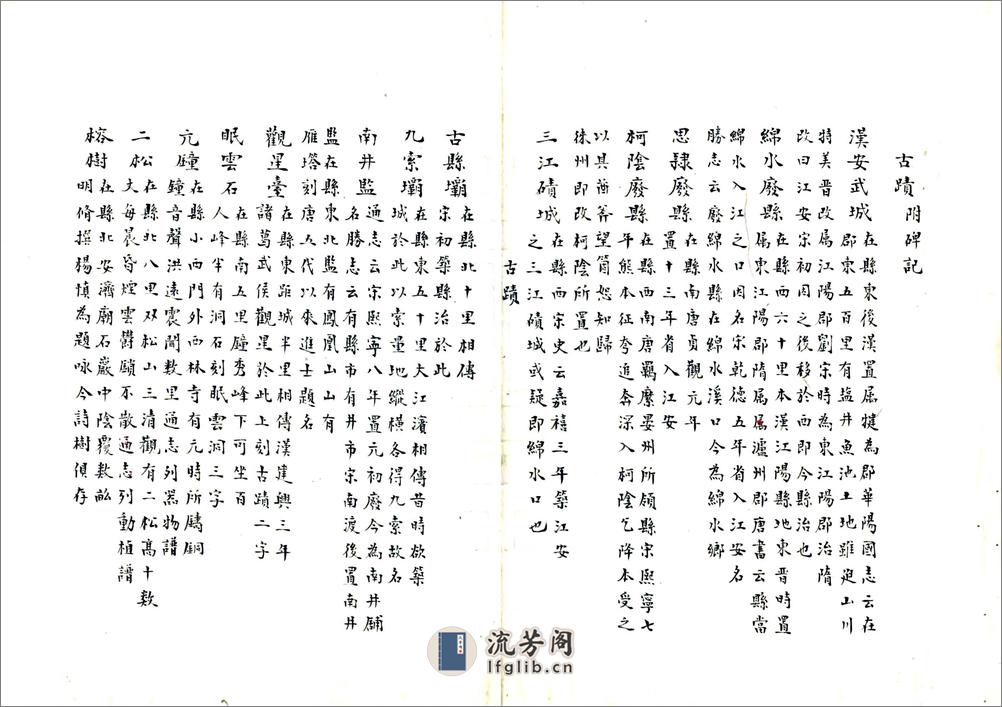 古蹟附碑記
漢安武城在縣東後漢置属犍為郡華陽國志云在
郡東五百里有鹽井魚池土地雖迫山川
特美晋改属江陽郡劉宋時為東江陽郡治隋
改曰江安宋初因之後移於西即今縣治也
綿水廢縣在縣西六十里本漢江陽縣地東晋時置
属東江陽郡隋属属瀘州郡唐書云縣當
綿水入江之口因名宋乾德五年省入江安名
勝志云廢綿水縣在綿水溪口今為綿水鄉
思隸廢縣在縣南唐貞觀元年
置十三年省入江安
柯陰廢縣在縣西南唐羈縻晏州所領縣宋熙寧七
年熊本征夸追奔深入柯陰乞降本受之
以其酋望箇恕知歸
徠州即改柯陰所置也
三江磧城在縣西宋史云嘉禧三年築江安
之三江磧城或疑即綿水口也
古蹟
古縣壩在縣北十里相傳
宋初築縣治於此
九索壩在縣東五十里大江濱相傳昔時欲築
城於此以索量地縱横各得九索故名
南井監通志云宋熙寧八年置元初廢今為南井舖
名勝志云有縣市有井市宋南渡後置南井
監在縣東北監有鳳凰山山有
雁塔刻唐五代以來進士題名
觀星臺在縣東距城半里相傳漢建興三年
諸葛武侯觀星於此上刻古蹟二字
眠雲石在縣南五里鐘秀峰下可坐百
人峰半有洞石刻眠雲洞三字
元鐘在縣小西門外西林寺有元時所鑄銅
鐘音聲洪遠震聞数里通志列器物譜
二松在縣北八里双松山三清觀有二松高十数
丈每晨昏煙雲欝顧不散通志列動植譜
榕樹在縣北安濟廟石巖中陰覆数畝
明脩撰楊慎為題咏今詩樹俱存
流芳阁
lfglib.cn